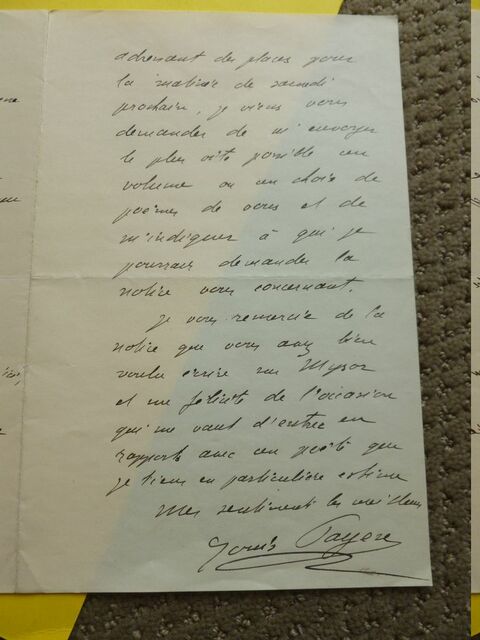 adressant des places pour
la matinée de samedi
prochain, je viens vous
demander de m'envoyer
le plus vite possible un
volume ou un choix de
poèmes de vous et de
m'indiquer à qui je
pourrais demander la
notice vous concernant.
Je vous remercie de la
notice que vous avez bien
voulu écrire sur
et me félicite de l'occasion
qui me vaut d'entrer en
rapports avec un poète que
je tiens en particulière estime
Mes sentiments les meilleurs
Louis Payen